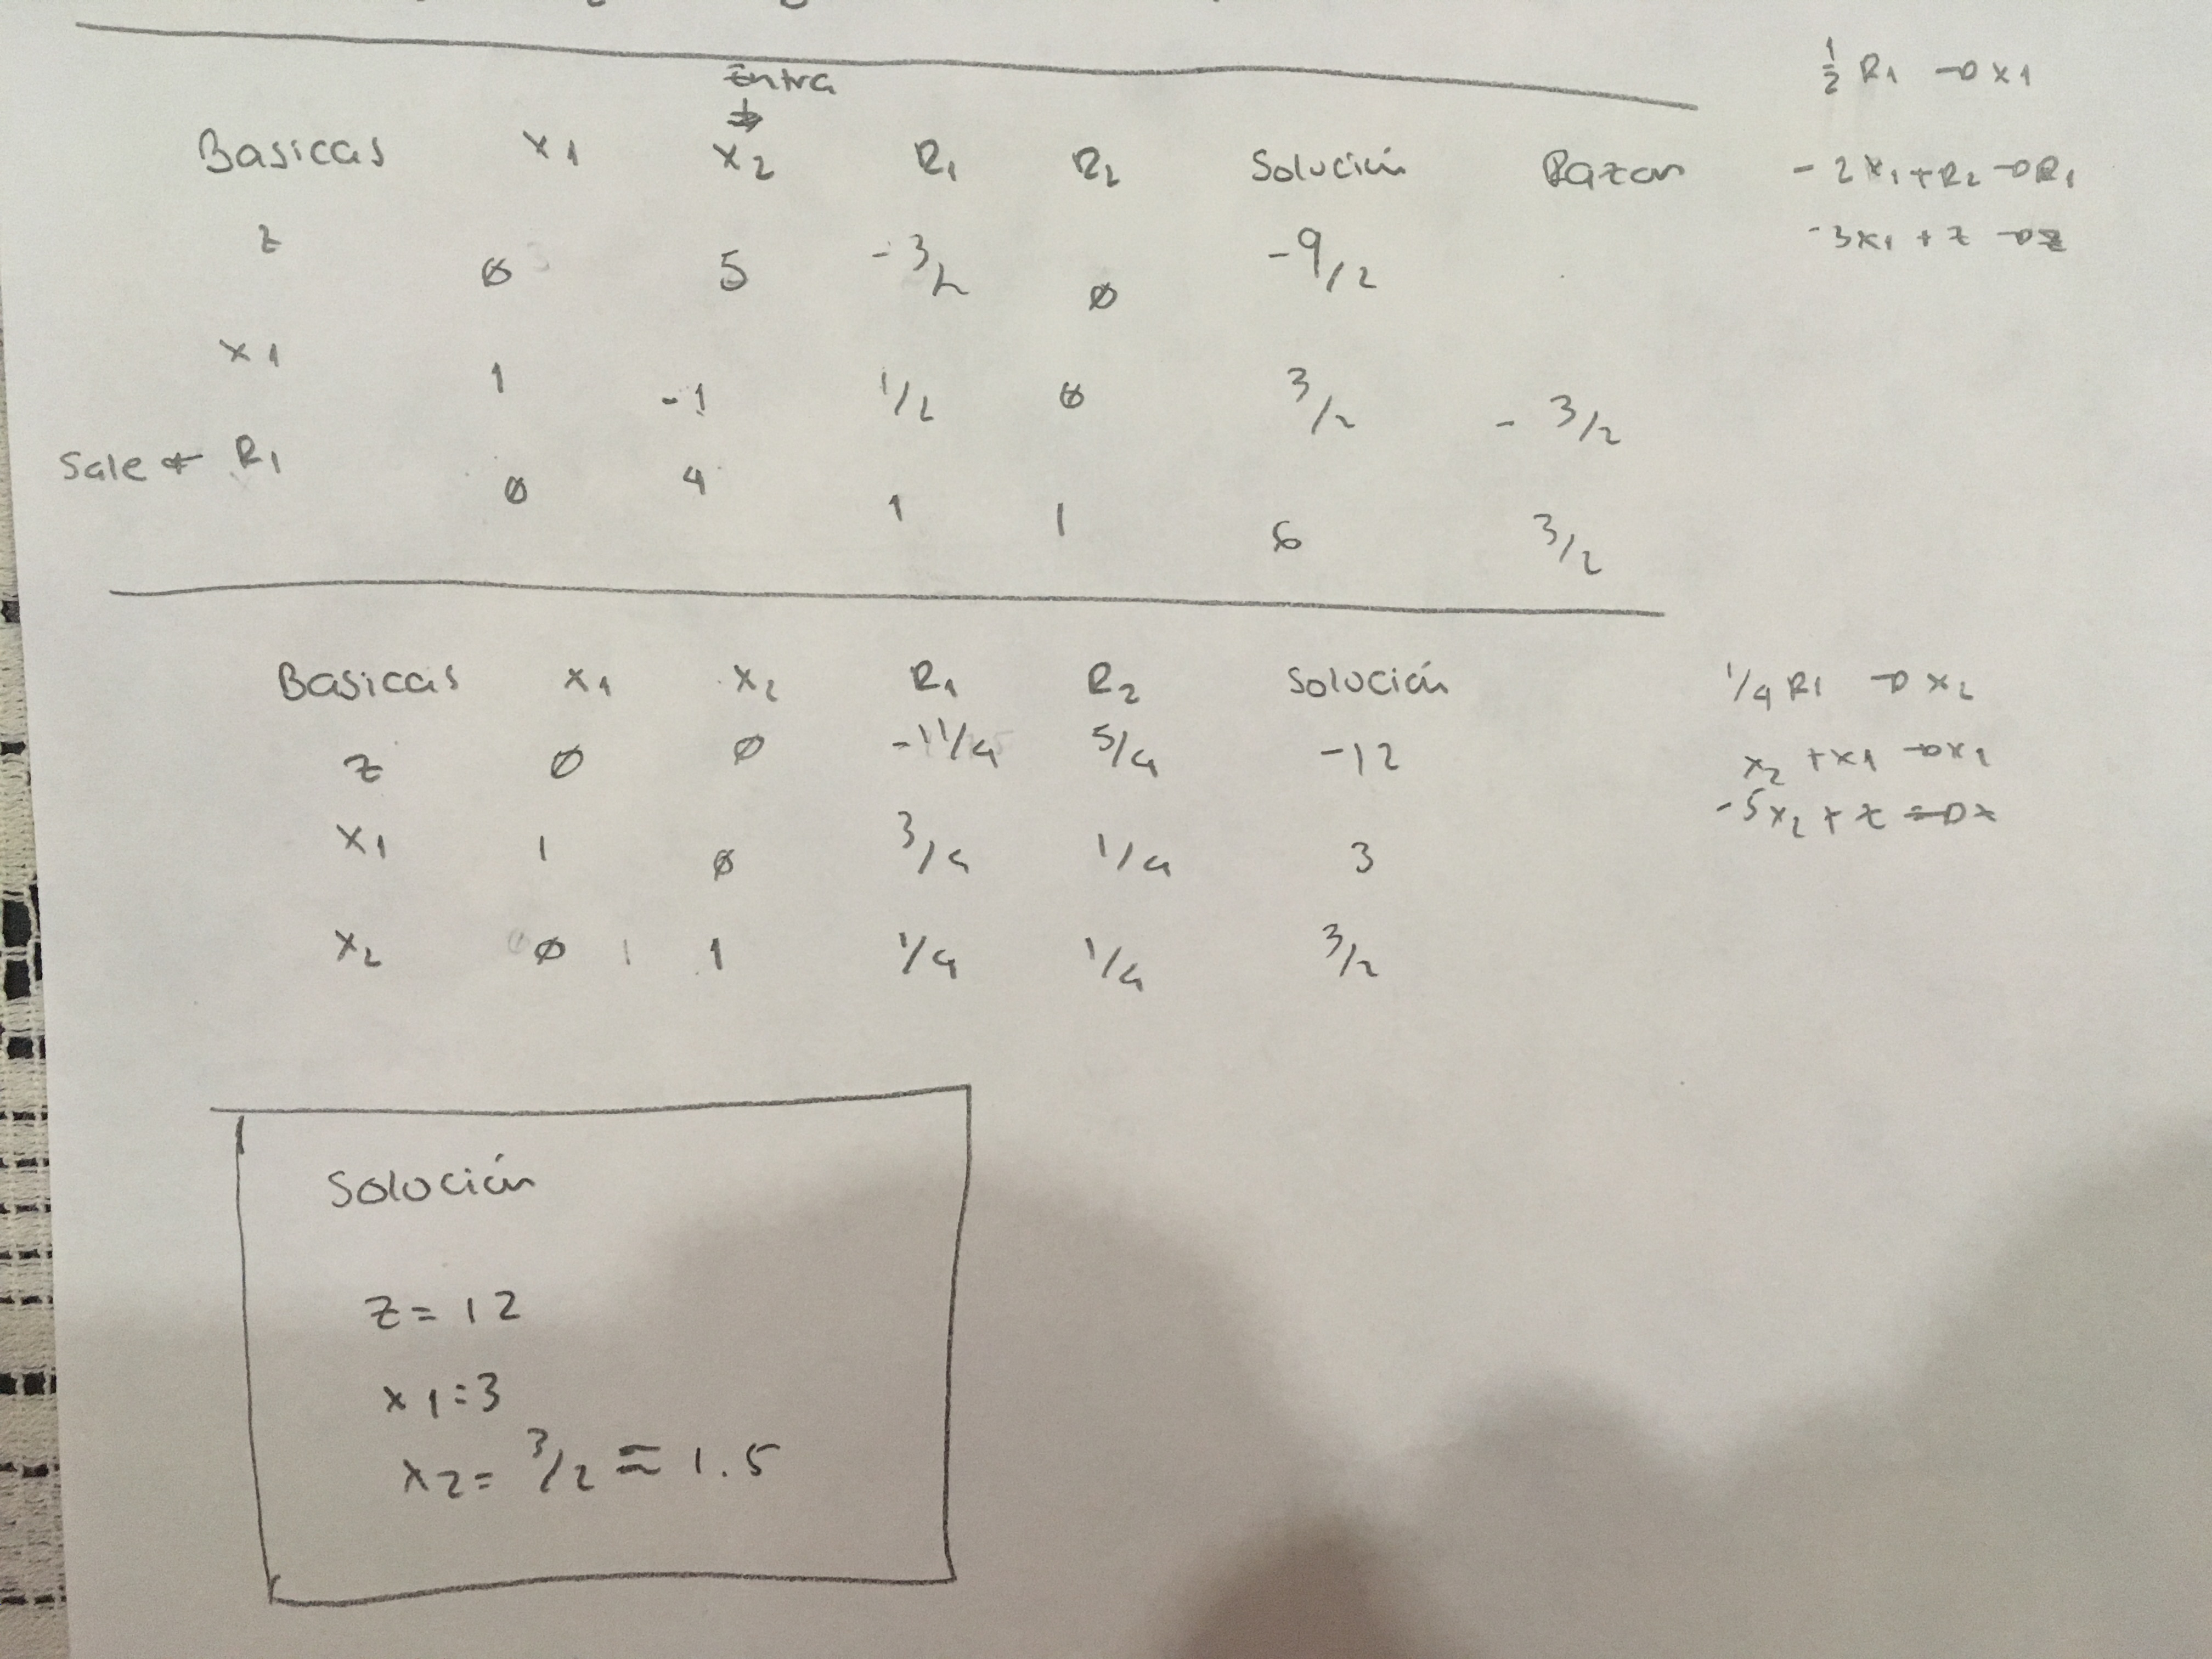 Entra
Basicas x1 x2 R1 R2 Solución Razon
z 0 5 -3/2 0 -9/2
x1 1 -1 1/2 0 3/2 -3/2
Sale R1 0 4 1 1 6 3/2
1/2 R1 → x1
-2x1+R2 → R1
-3x1+z → z
Basicas x1 x2 R1 R2 Solución
z 0 0 -11/4 5/4 -12
x1 1 0 3/4 1/4 3
x2 0 1 1/4 1/4 3/2
1/4 R1 → x2
x2+x1 → x2
-5x2+z → z
Solución
z=12
x1=3
x2=3/2≈1.5